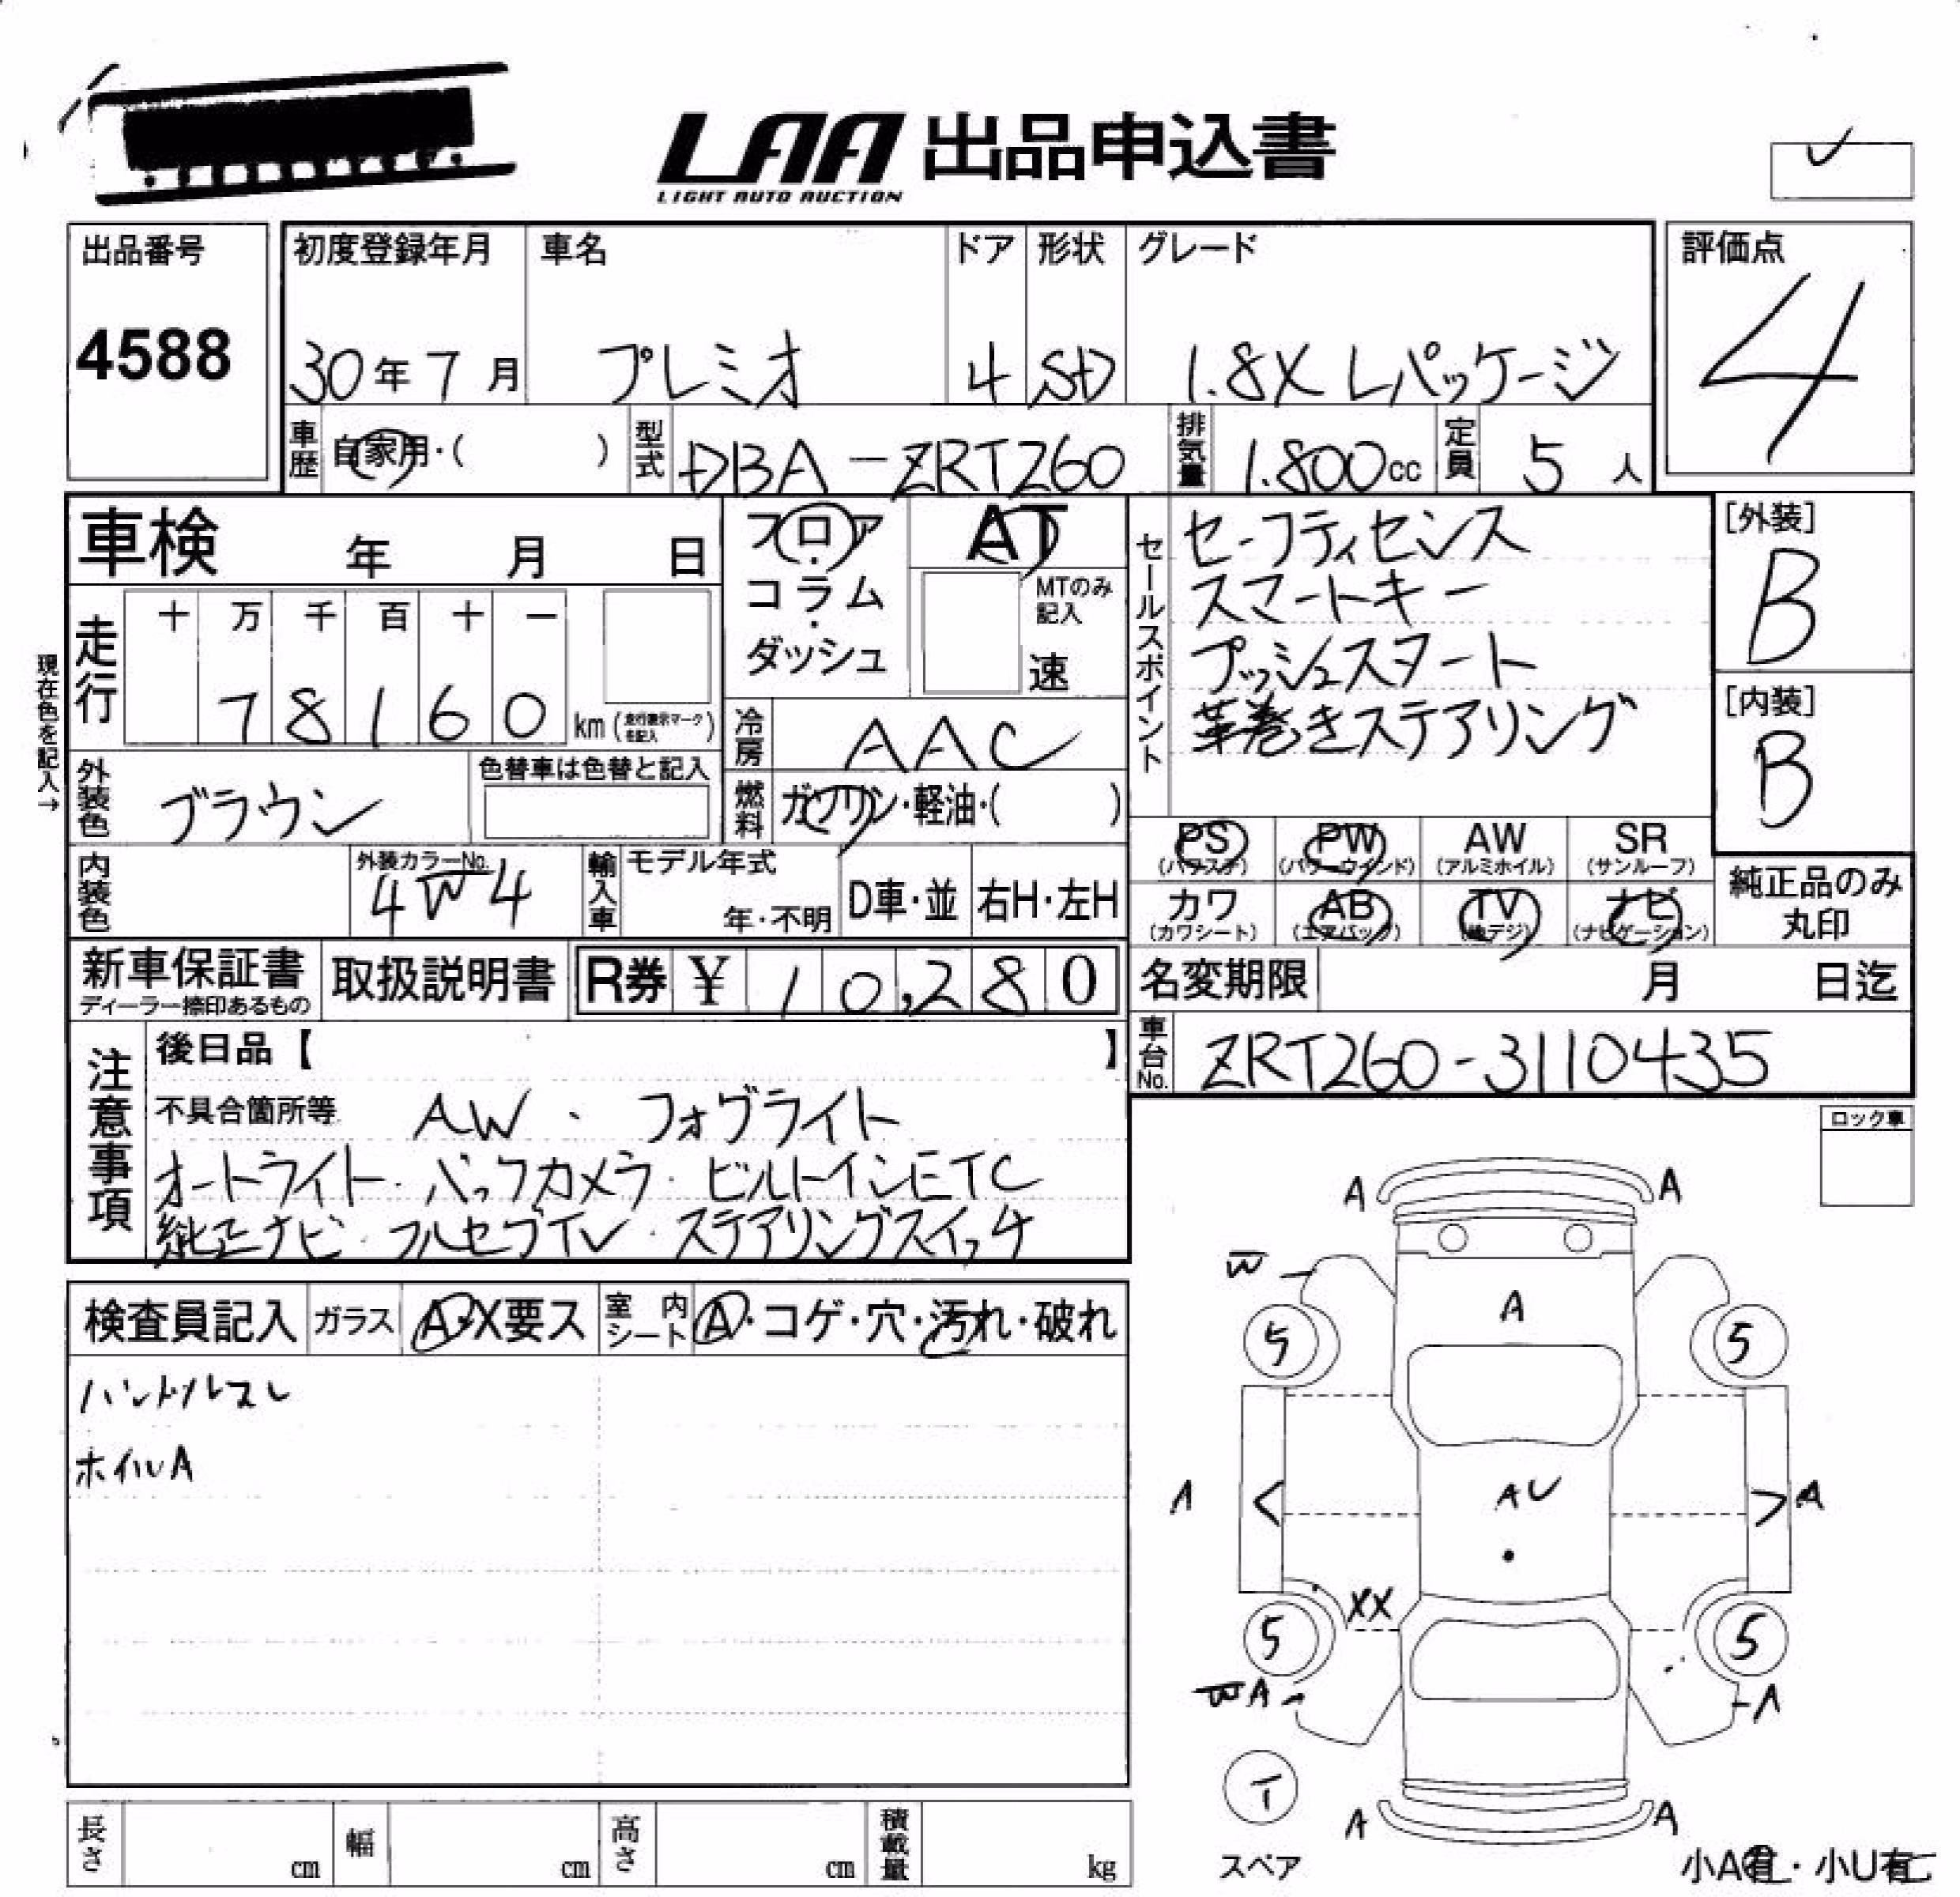 LAA 出品申込書
LIGHT AUTO AUCTION
出品番号
4588
初度登録年月 車名 ドア 形状 グレード
30年7月 プレミオ 4 SD 1.8X Lパッケージ
評価点
4
車歴 自家用・( ) 型式 DBA-ZRT260 排気量 1.800cc 定員 5人
車検 年 月 日
フロア・コラム・ダッシュ
AT
MTのみ記入
速
セールスポイント
セーフティセンス
スマートキー
プッシュスタート
革巻きステアリング
[外装]
B
[内装]
B
現在色を記入→
走行 十 万 千 百 十 一
78160 km (走行表示マークを記入)
冷房 AAC
外装色 ブラウン 色替車は色替と記入
燃料 ガソリン・軽油・( )
PS (パワステ) PW (パワーウインド) AW (アルミホイル) SR (サンルーフ)
カワ (カワシート) AB (エアバッグ) TV (地デジ) ナビ (ナビゲーション)
純正品のみ丸印
内装色 外装カラーNo. 4W4 輸入車 モデル年式 年・不明 D車・並 右H・左H
新車保証書 ディーラー捺印あるもの 取扱説明書 R券 ¥ 10,280
名変期限 月 日迄
車台No. ZRT260-3110435
注意事項
後日品【 】
不具合箇所等 AW・フォグライト
オートライト・バックカメラ・ビルトインETC
純正ナビ・フルセグTV・ステアリングスイッチ
ロック車
検査員記入 ガラス A・X要ス 室内シート A・コゲ・穴・汚れ・破れ
ハンドルスレ
ホイルA
A A
W
A
5 5
A AU A
XX
5 5
WA A
T
スペア
A A
小A有・小U有
長さ cm 幅 cm 高さ cm 積載量 kg